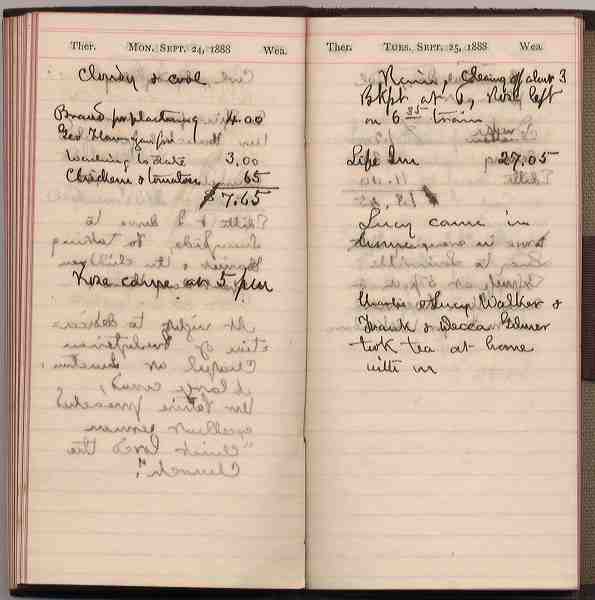 Ther. MON. SEPT. 24, 1888 Wea.
Cloudy & cool
for plastering 4.00
Geo
washing to date 3.00
Chickens & tomatoes 65
$ 7.65
Rose came at 5 pm
Ther. TUES. SEPT. 25, 1888 Wea.
Rain, Clearing off about 3
Bkft at 6, Rose left
on 6 35 train
Life Inn 27.05
Lucy came in
Charlie & Lucy Walker &
Frank & Decca Gilmer
took tea at home
with us